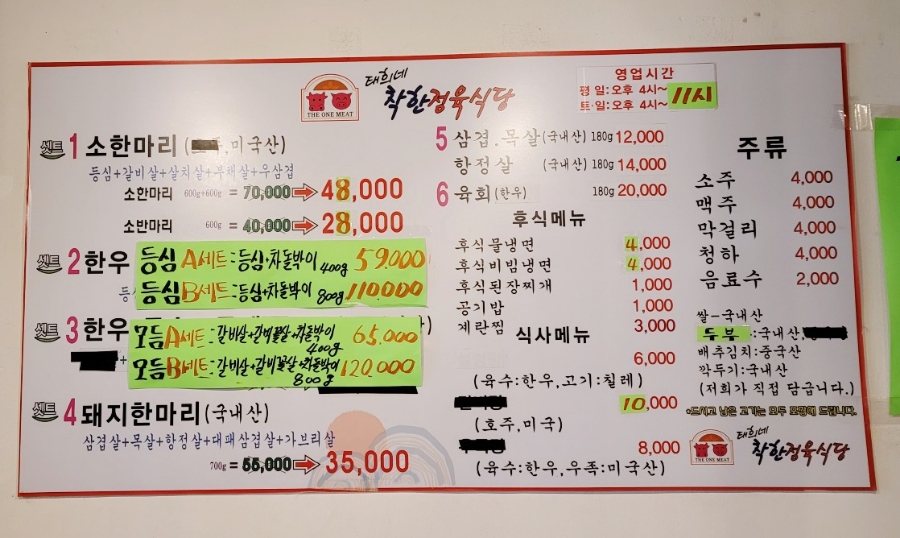 THE ONE MEAT
태희네
착한정육식당
영업시간
평 일:오후 4시~ 11시
토·일:오후 4시~
셋트 1 소한마리 ( 미국산)
등심+갈비살+살치살+부채살+우삼겹
소한마리 600g+600g = 70,000 48,000
소반마리 600g = 40,000 28,000
셋트 2 한우
등심 A세트:등심+차돌박이 400g 59.000
등심B세트:등심+차돌박이 800g 110.000
셋트 3 한우
모듬A세트:갈비살+갈비꽃살+차돌박이 400g 65.000
모듬B세트:갈비살+갈비꽃살+차돌박이 800g 120.000
셋트 4 돼지한마리(국내산)
삼겹살+목살+항정살+대패삼겹살+가브리살
700g = 55,000 35,000
5 삼겹.목살(국내산) 180g 12,000
항정살 (국내산) 180g 14,000
6 육회(한우) 180g 20,000
후식메뉴
후식물냉면 4,000
후식비빔냉면 4,000
후식된장찌개 1,000
공기밥 1,000
계란찜 3,000
식사메뉴
6,000
(육수:한우,고기:칠레)
10,000
(호주,미국)
8,000
(육수:한우,우족:미국산)
주류
소주 4,000
맥주 4,000
막걸리 4,000
청하 4,000
음료수 2,000
쌀-국내산
두부:국내산,
배추김치:중국산
깍두기:국내산
(저희가 직접 담급니다.)
*드시고 남은 고기는 모두 포장해 드립니다.
THE ONE MEAT
태희네
착한정육식당